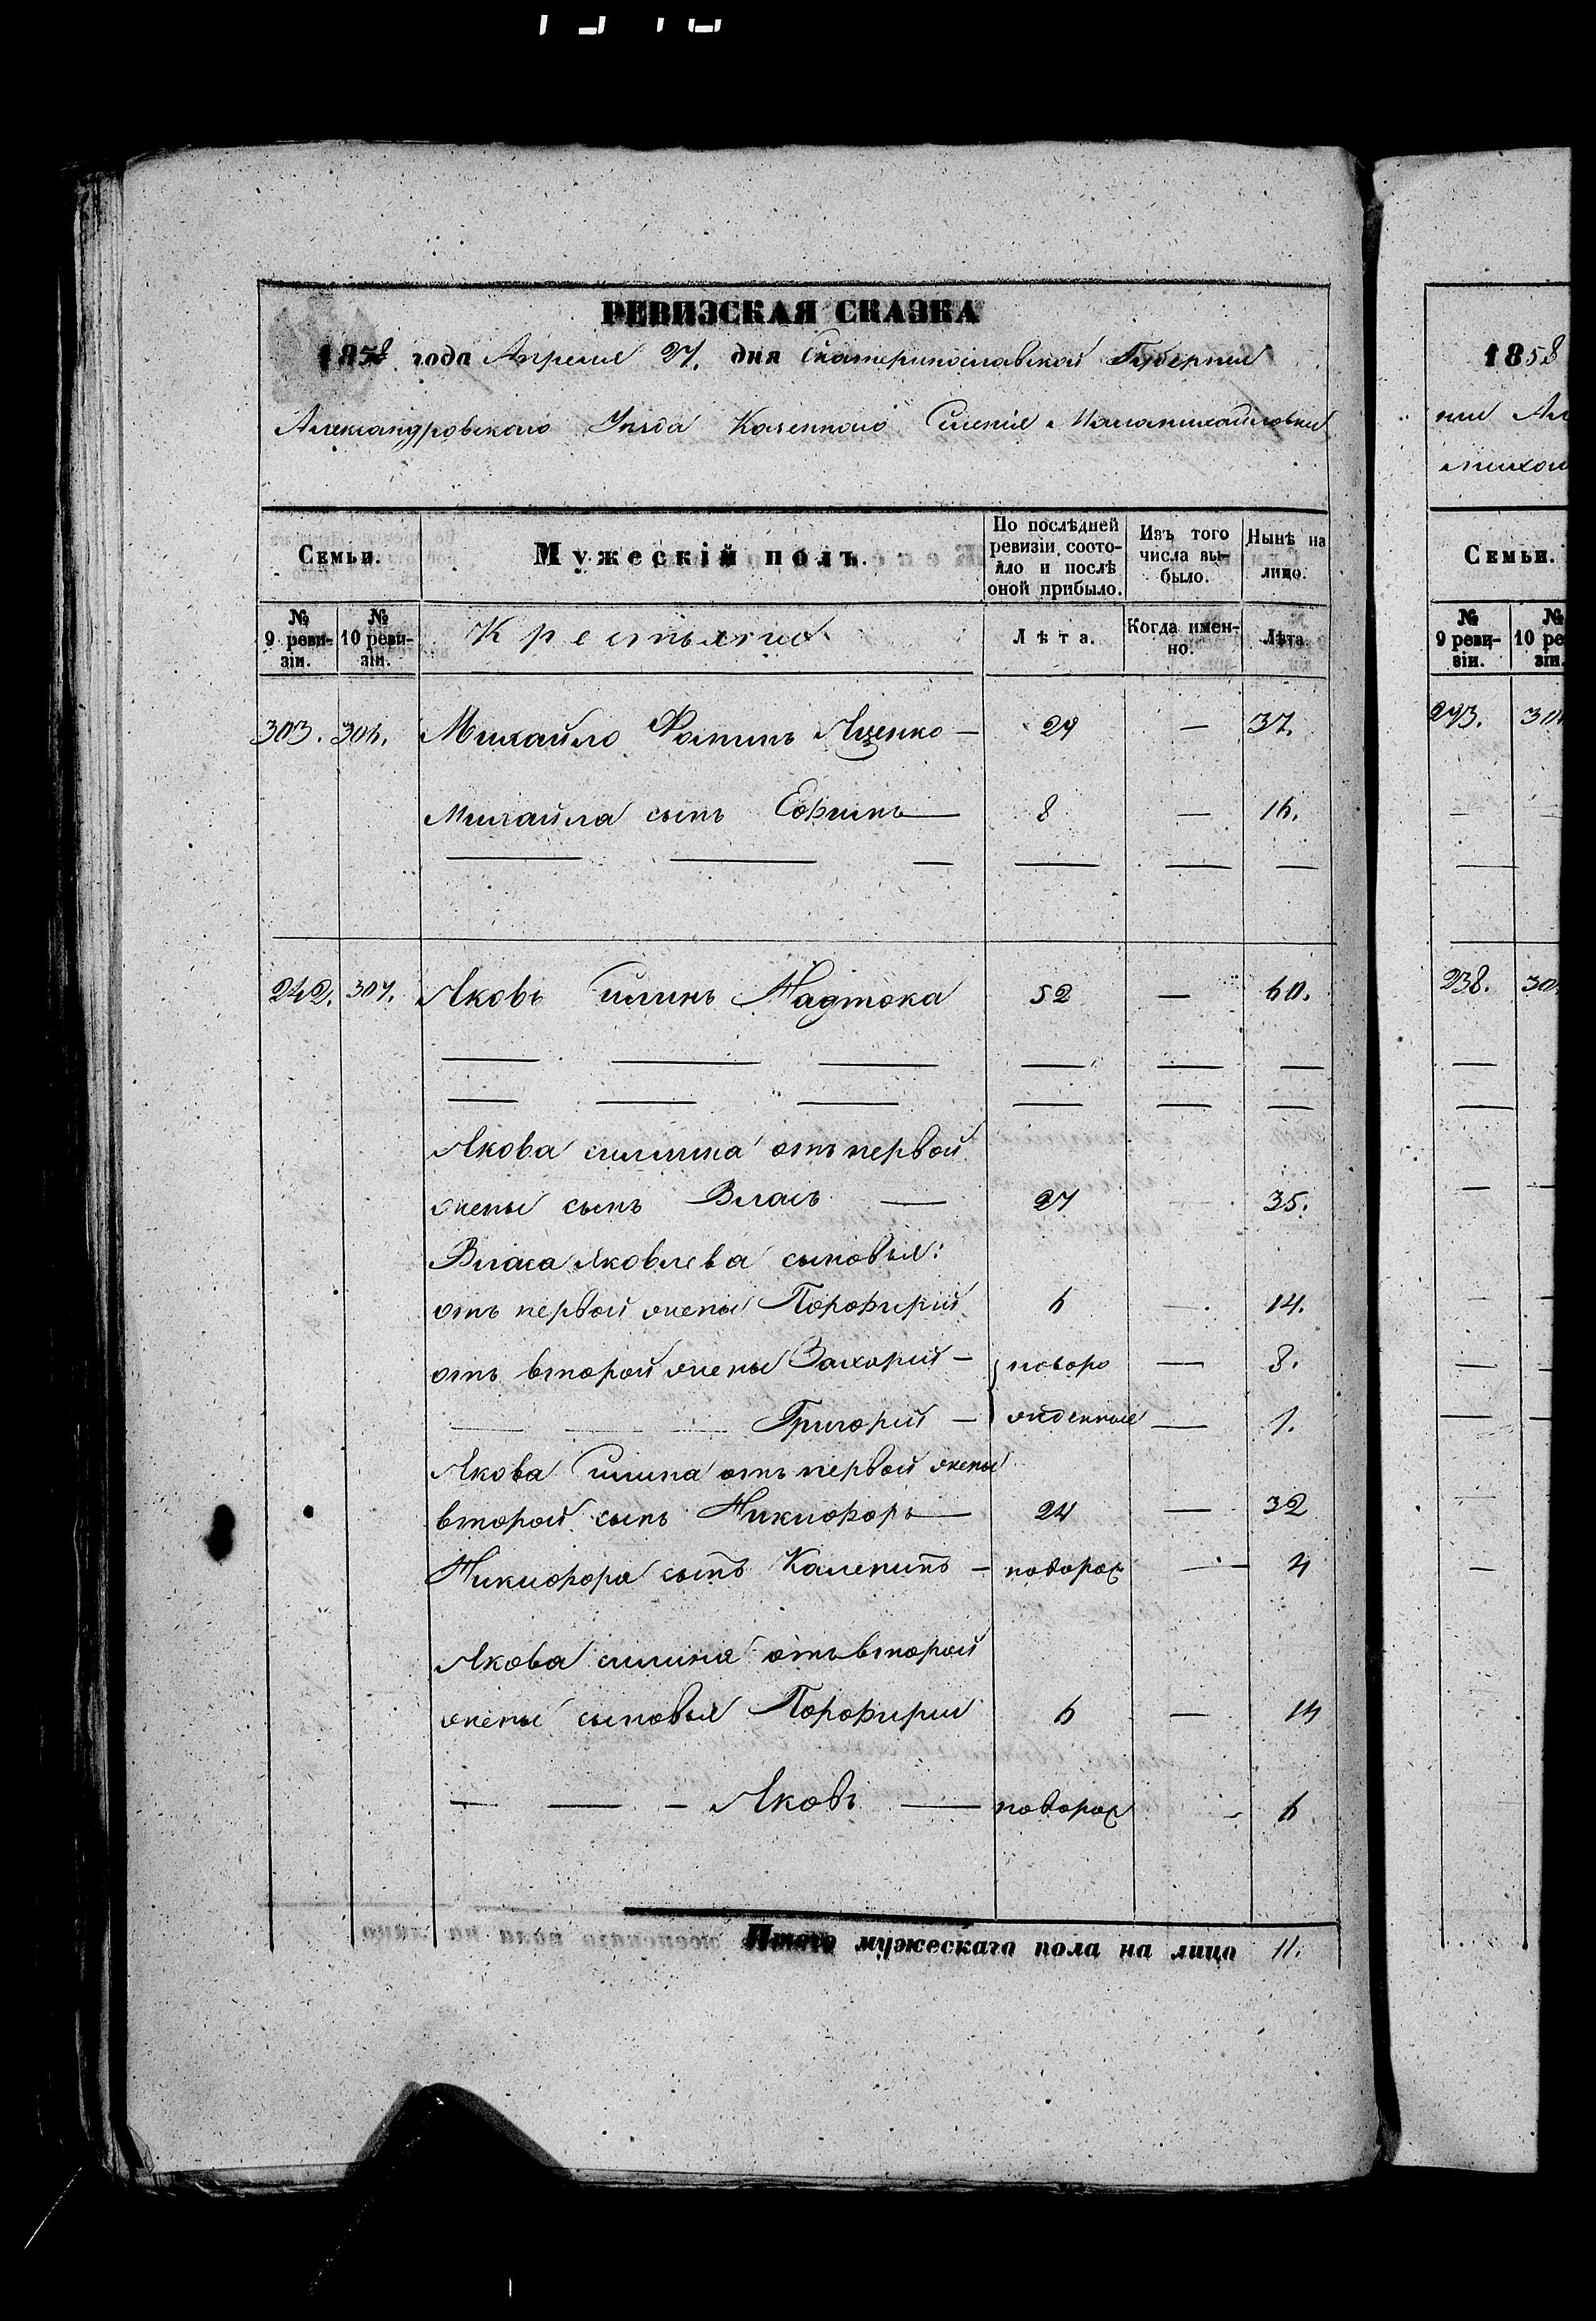 РЕВИЗСКАЯ СКАЗКА
1858 года Апреля 27. дня Екатеринославской Губернии
Александровского Уезда Казенного Селенія Маломихайловки
Семьи.
Мужескій полъ.
По послѣдней ревизіи состояло и послѣ оной прибыло.
Изъ того числа выбыло.
Нынѣ на лицо.
№ 9 ревизіи.
№ 10 ревизіи.
Крестьяне
Лѣта.
Когда именно.
Лѣта.
303. 306. Михайло Фоминъ Яценко — 29 — 37.
Михайла сынъ Ефимъ — 8 — 16.
242. 307. Яковъ Силинъ Надтока 52 — 60.
Якова силина отъ первой
жены сынъ Власъ — 27 35.
Власа Яковлева сыновья:
отъ первой жены Порфирий 6 — 14.
отъ второй жены Захарий — новоро — 8.
Григорий — жденные — 1.
Якова Силина отъ первой жены
второй сынъ Никифоръ — 24 — 32
Никифора сынъ Каленикъ — новорож — 4
Якова силина отъ второй
жены сыновья Порфирий 6 — 14
— — — Яковъ — новорож - 6
Итого мужескаго пола на лицо 11.
1858
Семьи.
№ 9 ревизіи.
293.
238.